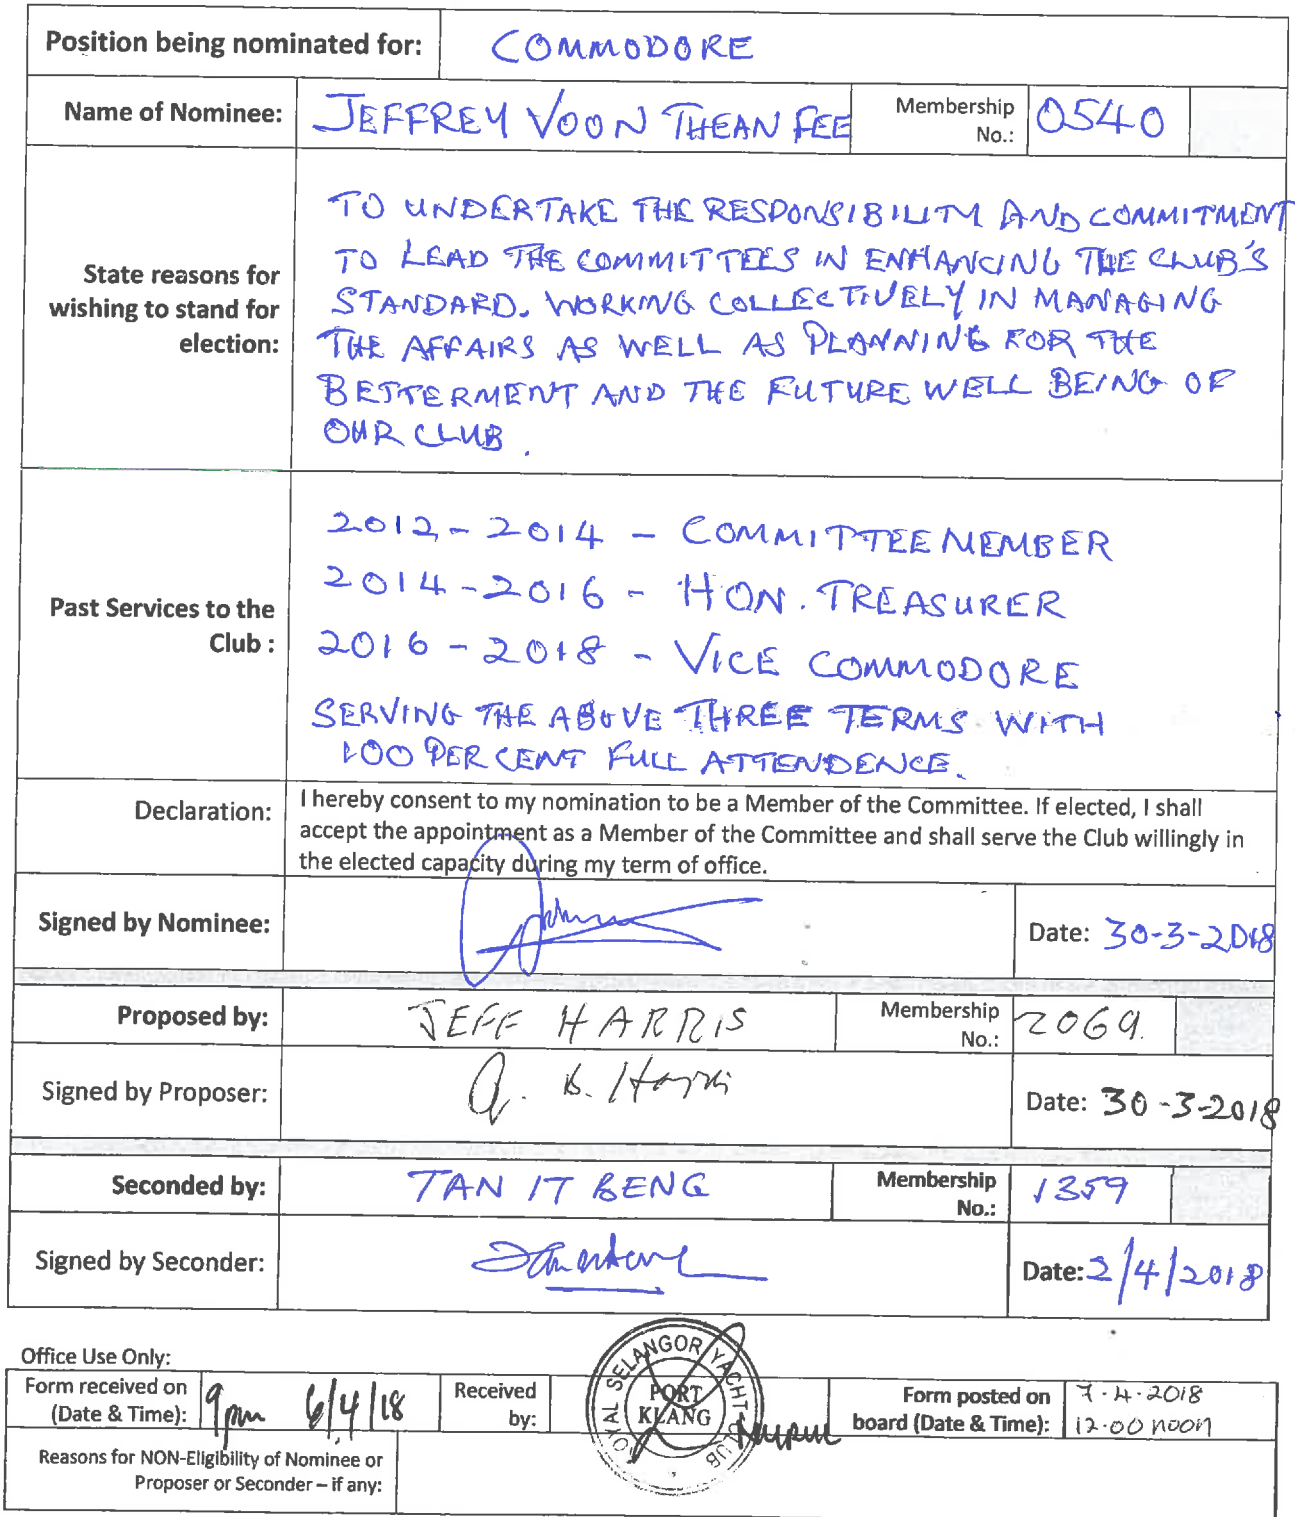 Position being nominated for: COMMODORE
Name of Nominee: JEFFREY VOON THEAN FEE Membership No.: 0540
State reasons for wishing to stand for election:
TO UNDERTAKE THE RESPONSIBILITY AND COMMITMENT
TO LEAD THE COMMITTEES IN ENHANCING THE CLUB'S
STANDARD. WORKING COLLECTIVELY IN MANAGING
THE AFFAIRS AS WELL AS PLANNING FOR THE
BETTERMENT AND THE FUTURE WELL BEING OF
OUR CLUB.
Past Services to the Club :
2012 - 2014 - COMMITTEE MEMBER
2014 - 2016 - HON. TREASURER
2016 - 2018 - VICE COMMODORE
SERVING THE ABOVE THREE TERMS WITH
100 PER CENT FULL ATTENDENCE.
Declaration: I hereby consent to my nomination to be a Member of the Committee. If elected, I shall
accept the appointment as a Member of the Committee and shall serve the Club willingly in
the elected capacity during my term of office.
Signed by Nominee: Date: 30-3-2018
Proposed by: JEFF HARRIS Membership No.: 2069.
Signed by Proposer: Date: 30-3-2018
Seconded by: TAN IT BENG Membership No.: 1359
Signed by Seconder: Date: 2/4/2018
Office Use Only:
Form received on (Date & Time): 9pm 6/4/18 Received by: ROYAL SELANGOR YACHT CLUB PORT KLANG Form posted on board (Date & Time): 7.4.2018 12.00 noon
Reasons for NON-Eligibility of Nominee or
Proposer or Seconder – if any: